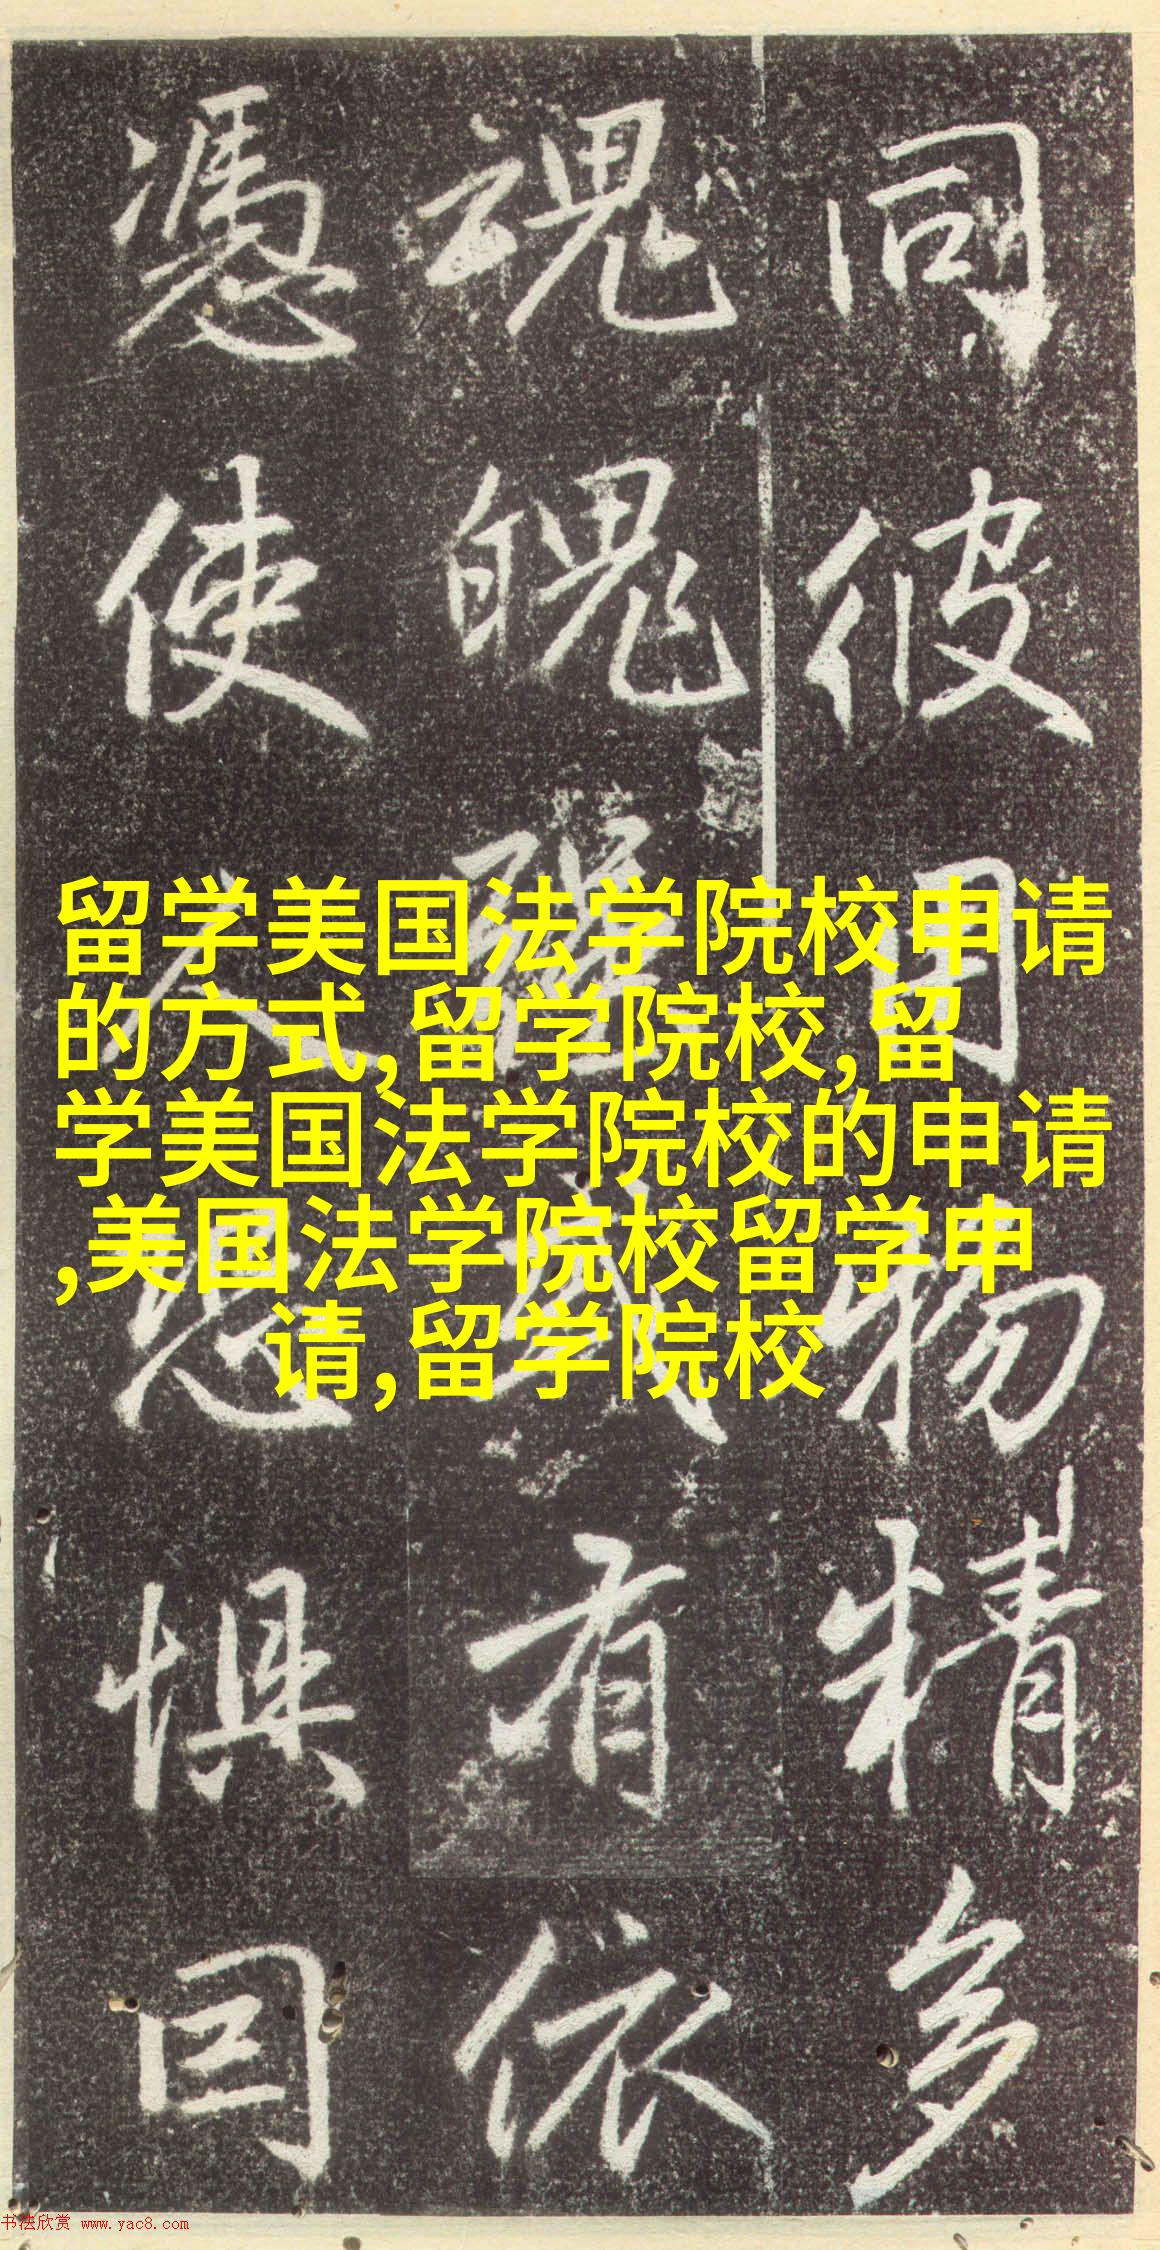 同彼用物精多
魂魄强或有依
憑使人恐懼因
留学美国法学院校申请
的方式,留学院校,留
学美国法学院校的申请
,美国法学院校留学申
请,留学院校
书法欣赏 www.yac8.com